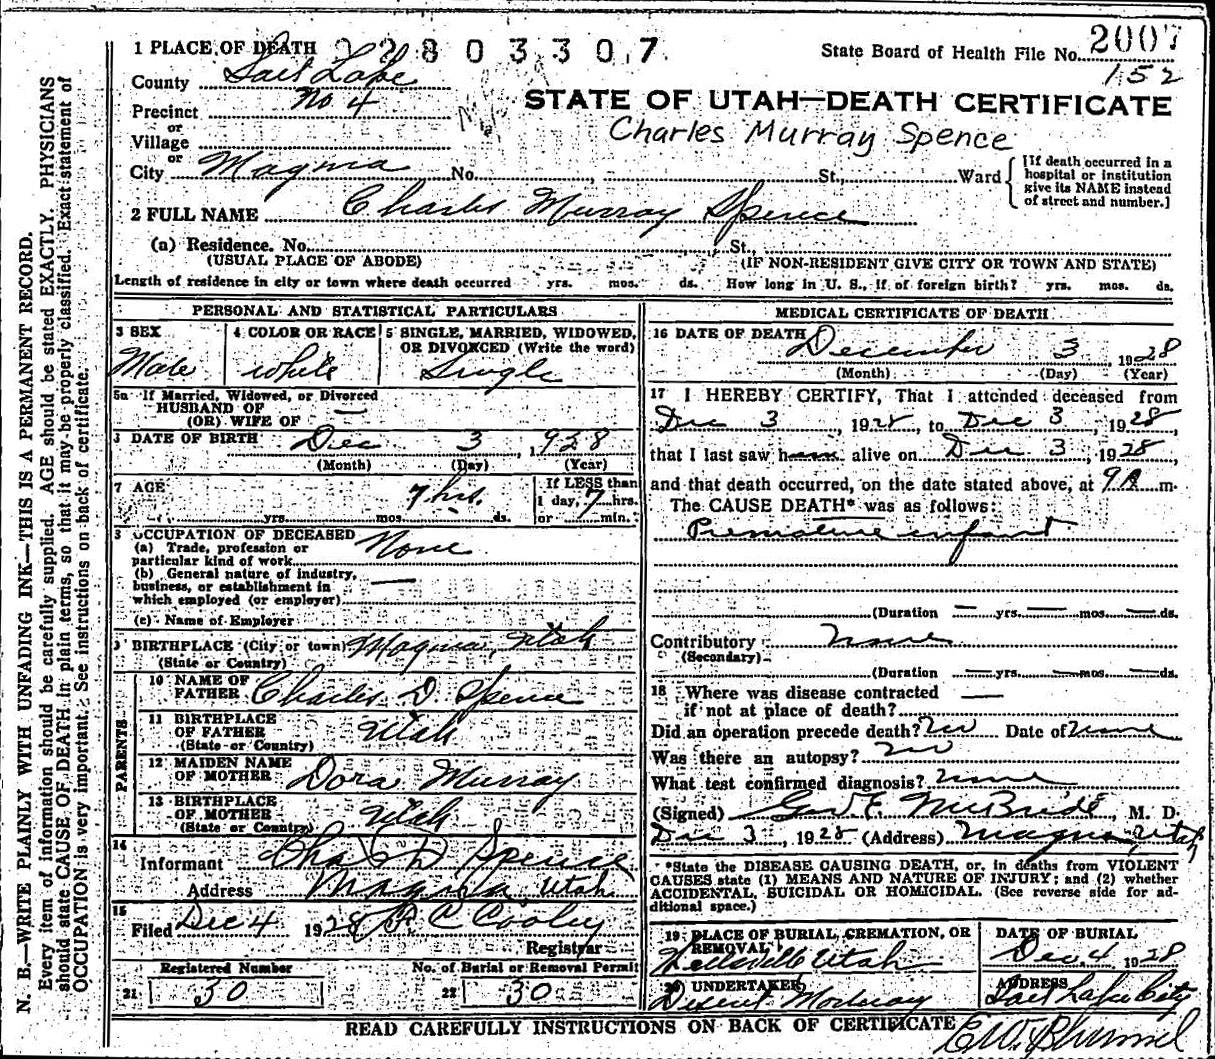 1 PLACE OF DEATH 2803307
State Board of Health File No. 2007
152
County Salt Lake
Precinct No 4
STATE OF UTAH—DEATH CERTIFICATE
or
Village
Charles Murray Spence
or
City Magna No. , St., Ward
[If death occurred in a hospital or institution give its NAME instead of street and number.]
2 FULL NAME Charles Murray Spence
(a) Residence. No. St.,
(USUAL PLACE OF ABODE) (IF NON-RESIDENT GIVE CITY OR TOWN AND STATE)
Length of residence in city or town where death occurred yrs. mos. ds. How long in U. S., if of foreign birth? yrs. mos. ds.
PERSONAL AND STATISTICAL PARTICULARS
3 SEX
Male
4 COLOR OR RACE
White
5 SINGLE, MARRIED, WIDOWED,
OR DIVORCED (Write the word)
Single
5a If Married, Widowed, or Divorced
HUSBAND OF —
(OR) WIFE OF
DATE OF BIRTH Dec 3, 1928
(Month) (Day) (Year)
7 AGE 7 hrs.
yrs. mos. ds.
If LESS than
1 day, 7 hrs.
or min.
8 OCCUPATION OF DECEASED
(a) Trade, profession or
particular kind of work None
(b) General nature of industry,
business, or establishment in
which employed (or employer) —
(c) Name of Employer
9 BIRTHPLACE (City or town) Magna, Utah
(State or Country)
PARENTS
10 NAME OF
FATHER Charles D. Spence
11 BIRTHPLACE
OF FATHER Utah
(State or Country)
12 MAIDEN NAME
OF MOTHER Dora Murray
13 BIRTHPLACE
OF MOTHER Utah
(State or Country)
14
Informant Chas D Spence
Address Magna Utah
15
Filed Dec 4 1928 C Cooley
Registrar
Registered Number
21 30
No. of Burial or Removal Permit
22 30
MEDICAL CERTIFICATE OF DEATH
16 DATE OF DEATH December 3, 1928
(Month) (Day) (Year)
17 I HEREBY CERTIFY, That I attended deceased from
Dec 3, 1928, to Dec 3, 1928,
that I last saw h alive on Dec 3, 1928,
and that death occurred, on the date stated above, at 9A m.
The CAUSE DEATH* was as follows:
Premature infant
(Duration — yrs. — mos. — ds.
Contributory none
(Secondary)
(Duration — yrs. — mos. — ds.
18 Where was disease contracted
if not at place of death? —
Did an operation precede death? No Date of none
Was there an autopsy? no
What test confirmed diagnosis? none
(Signed) Geo. E. McBride, M. D.
Dec 3, 1928 (Address) Magna, Utah
*State the DISEASE CAUSING DEATH, or, in deaths from VIOLENT
CAUSES state (1) MEANS AND NATURE OF INJURY; and (2) whether
ACCIDENTAL, SUICIDAL OR HOMICIDAL. (See reverse side for ad-
ditional space.)
19 PLACE OF BURIAL, CREMATION, OR
REMOVAL
Wellsville Utah
DATE OF BURIAL
Dec. 4 1928
20 UNDERTAKER
Deseret Mortuary
ADDRESS
Salt Lake City
READ CAREFULLY INSTRUCTIONS ON BACK OF CERTIFICATE
N. B.—WRITE PLAINLY WITH UNFADING INK—THIS IS A PERMANENT RECORD.
Every item of information should be carefully supplied. AGE should be stated EXACTLY. PHYSICIANS
should state CAUSE OF DEATH in plain terms, so that it may be properly classified. Exact statement of
OCCUPATION is very important. See instructions on back of certificate.